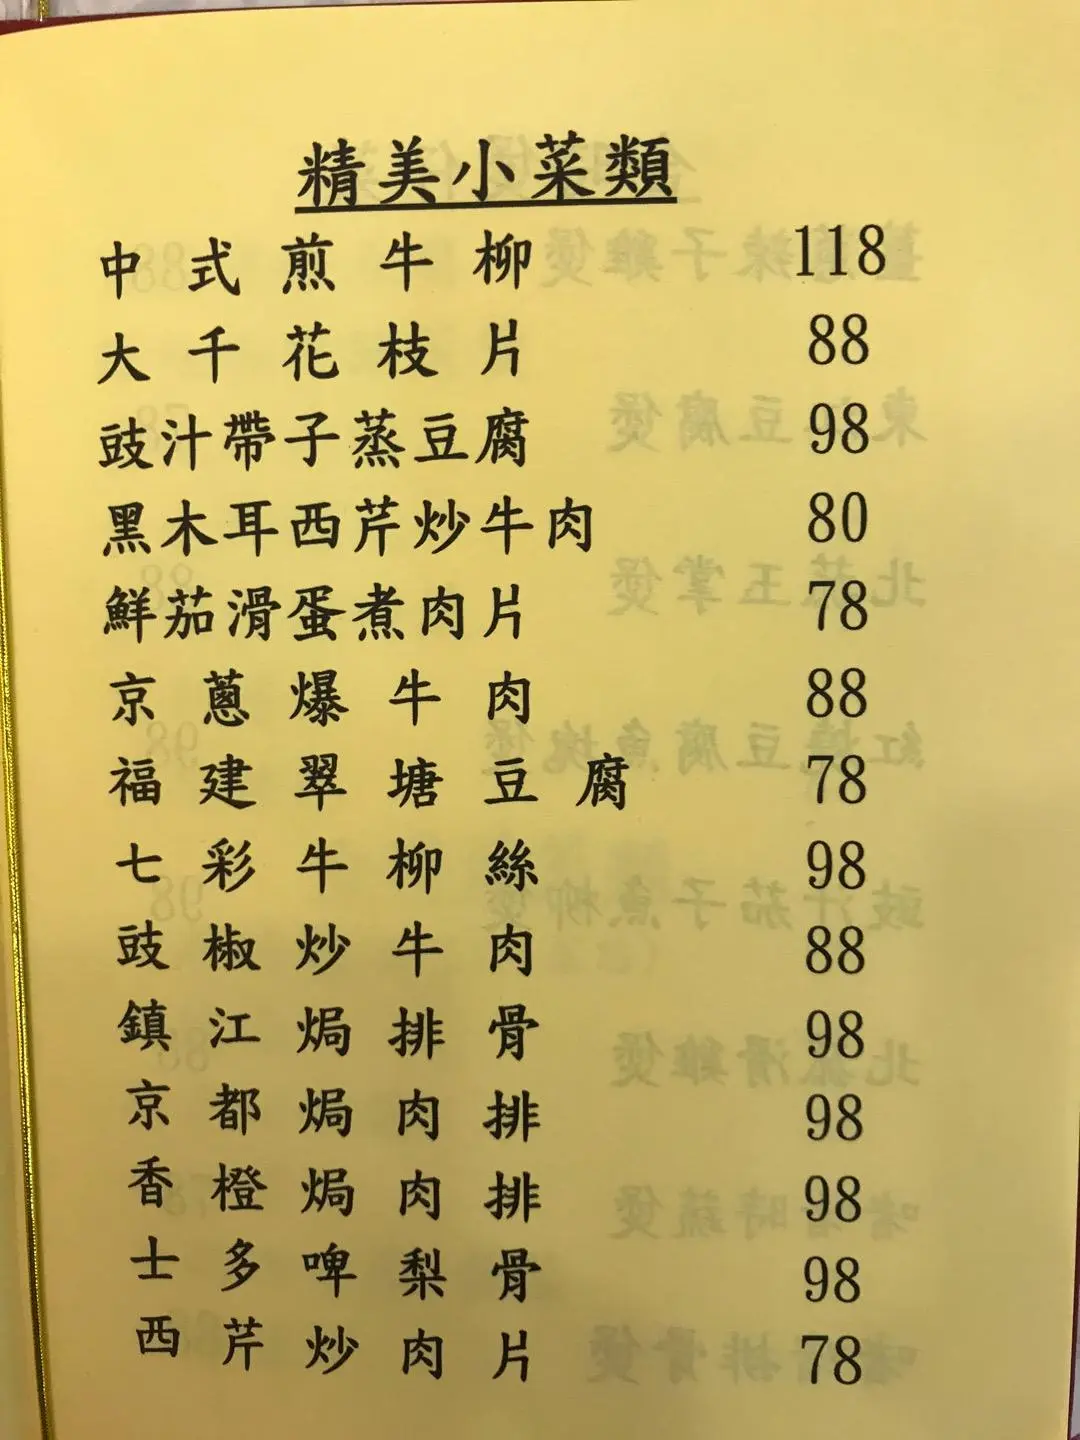 精美小菜類
中式煎牛柳 118
大千花枝片 88
豉汁帶子蒸豆腐 98
黑木耳西芹炒牛肉 80
鮮茄滑蛋煮肉片 78
京蔥爆牛肉 88
福建翠塘豆腐 78
七彩牛柳絲 98
豉椒炒牛肉 88
鎮江焗排骨 98
京都焗肉排 98
香橙焗肉排 98
士多啤梨骨 98
西芹炒肉片 78